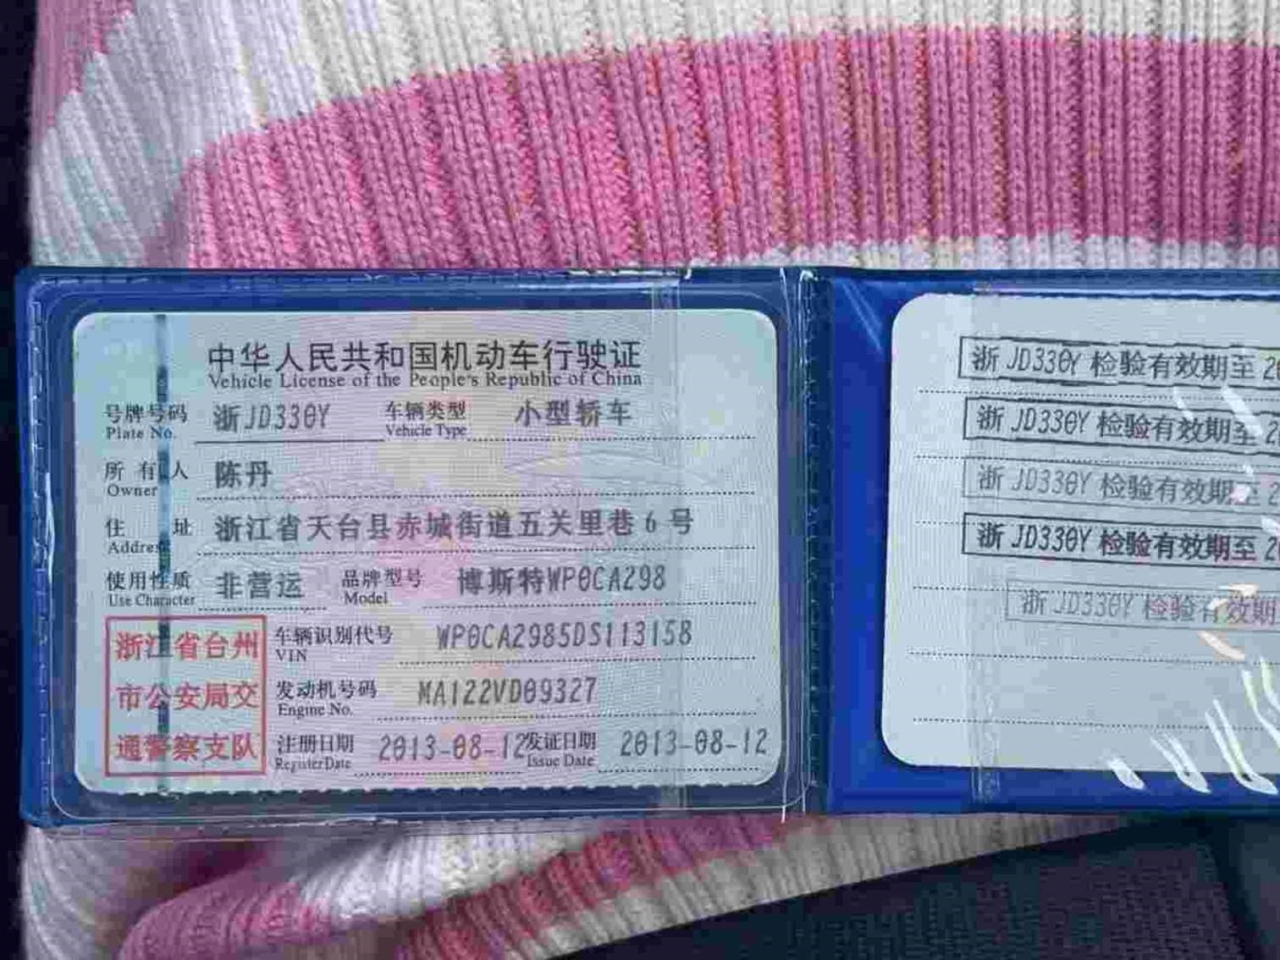 中华人民共和国机动车行驶证
Vehicle License of the People's Republic of China
号牌号码 浙JD330Y 车辆类型 小型轿车
Plate No. Vehicle Type
所有人 陈丹
Owner
住址 浙江省天台县赤城街道五关里巷6号
Address
使用性质 非营运 品牌型号 博斯特WP0CA298
Use Character Model
浙江省台州
市公安局交
通警察支队
车辆识别代号 WP0CA2985DS113158
VIN
发动机号码 MA122VD09327
Engine No.
注册日期 2013-08-12 发证日期 2013-08-12
Register Date Issue Date
浙JD330Y 检验有效期至 20
浙JD330Y 检验有效期至 2
浙JD330Y 检验有效期至 2
浙JD330Y 检验有效期至 20
浙JD330Y 检验有效期